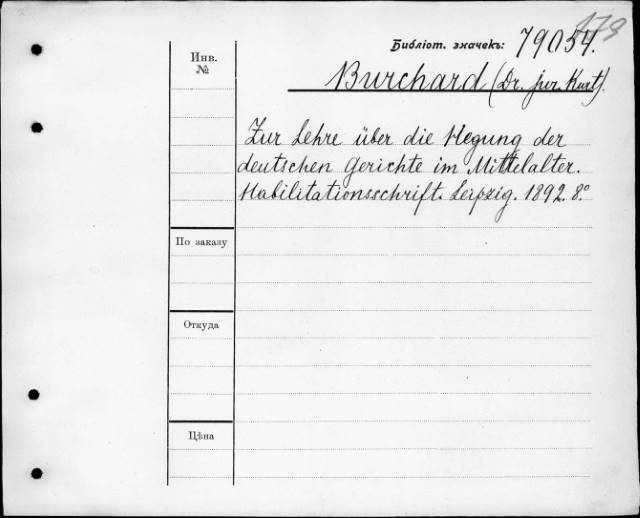 178
Библіот. значекъ: 79054.
Инв.
№
Burchard (Dr. jur. Kurt).
Zur Lehre über die Hegung der
deutschen Gerichte im Mittelalter.
Habilitationsschrift. Leipzig. 1892. 8.°
По заказу
Откуда
Цѣна